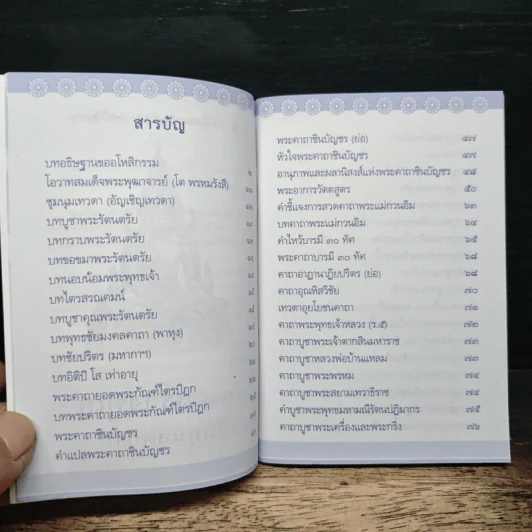 สารบัญ
บทอธิษฐานขออโหสิกรรม ๒
โอวาทสมเด็จพระพุฒาจารย์ (โต พรหมรังสี)
ชุมนุมเทวดา (อัญเชิญเทวดา)
บทบูชาพระรัตนตรัย
บทกราบพระรัตนตรัย
บทขอขมาพระรัตนตรัย
บทนอบน้อมพระพุทธเจ้า
บทไตรสรณคมน์
บทบูชาคุณพระรัตนตรัย
บทพุทธชัยมงคลคาถา (พาหุง)
บทชัยปริตร (มหากาฯ)
บทอิติปิ โส เท่าอายุ
พระคาถายอดพระกัณฑ์ไตรปิฎก
บทพระคาถายอดพระกัณฑ์ไตรปิฎก
พระคาถาชินบัญชร
คำแปลพระคาถาชินบัญชร
พระคาถาชินบัญชร (ย่อ) ๔๗
หัวใจพระคาถาชินบัญชร ๔๗
อานุภาพและผลานิสงส์แห่งพระคาถาชินบัญชร ๔๘
พระอาการวัตตสูตร ๕๐
คำชี้แจงการสวดคาถาพระแม่กวนอิม ๖๓
บทคาถาพระแม่กวนอิม ๖๔
คำไหว้บารมี ๓๐ ทัศ ๖๕
พระคาถาบารมี ๓๐ ทัศ ๖๘
คาถาอาฏานาฏิยปริตร (ย่อ) ๖๘
คาถาอุณหิสวิชัย ๗๐
เทวตาอุยโยชนคาถา ๗๑
คาถาพระพุทธเจ้าหลวง (ร.๕) ๗๒
คาถาบูชาพระเจ้าตากสินมหาราช ๗๓
คาถาบูชาหลวงพ่อบ้านแหลม ๗๓
คาถาบูชาพระพรหม ๗๔
คาถาบูชาพระสยามเทวาธิราช ๗๔
คำบูชาพระพุทธมหามณีรัตนปฏิมากร ๗๕
คาถาบูชาพระเครื่องและพระกริ่ง ๗๖